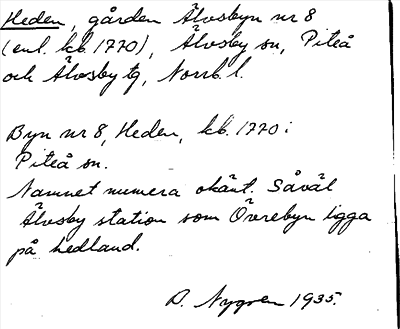 Heden, gården Älvsbyn nr 8
(enl. kb. 1770), Älvsby sn, Piteå
och Älvsby tg, Norrb. l.
Byn nr 8, Heden, kb. 1770 i
Piteå sn.
Namnet numera okänt. Såväl
Älvsby station som Övrebyn ligga
på hedland.
D. Nygren 1935.